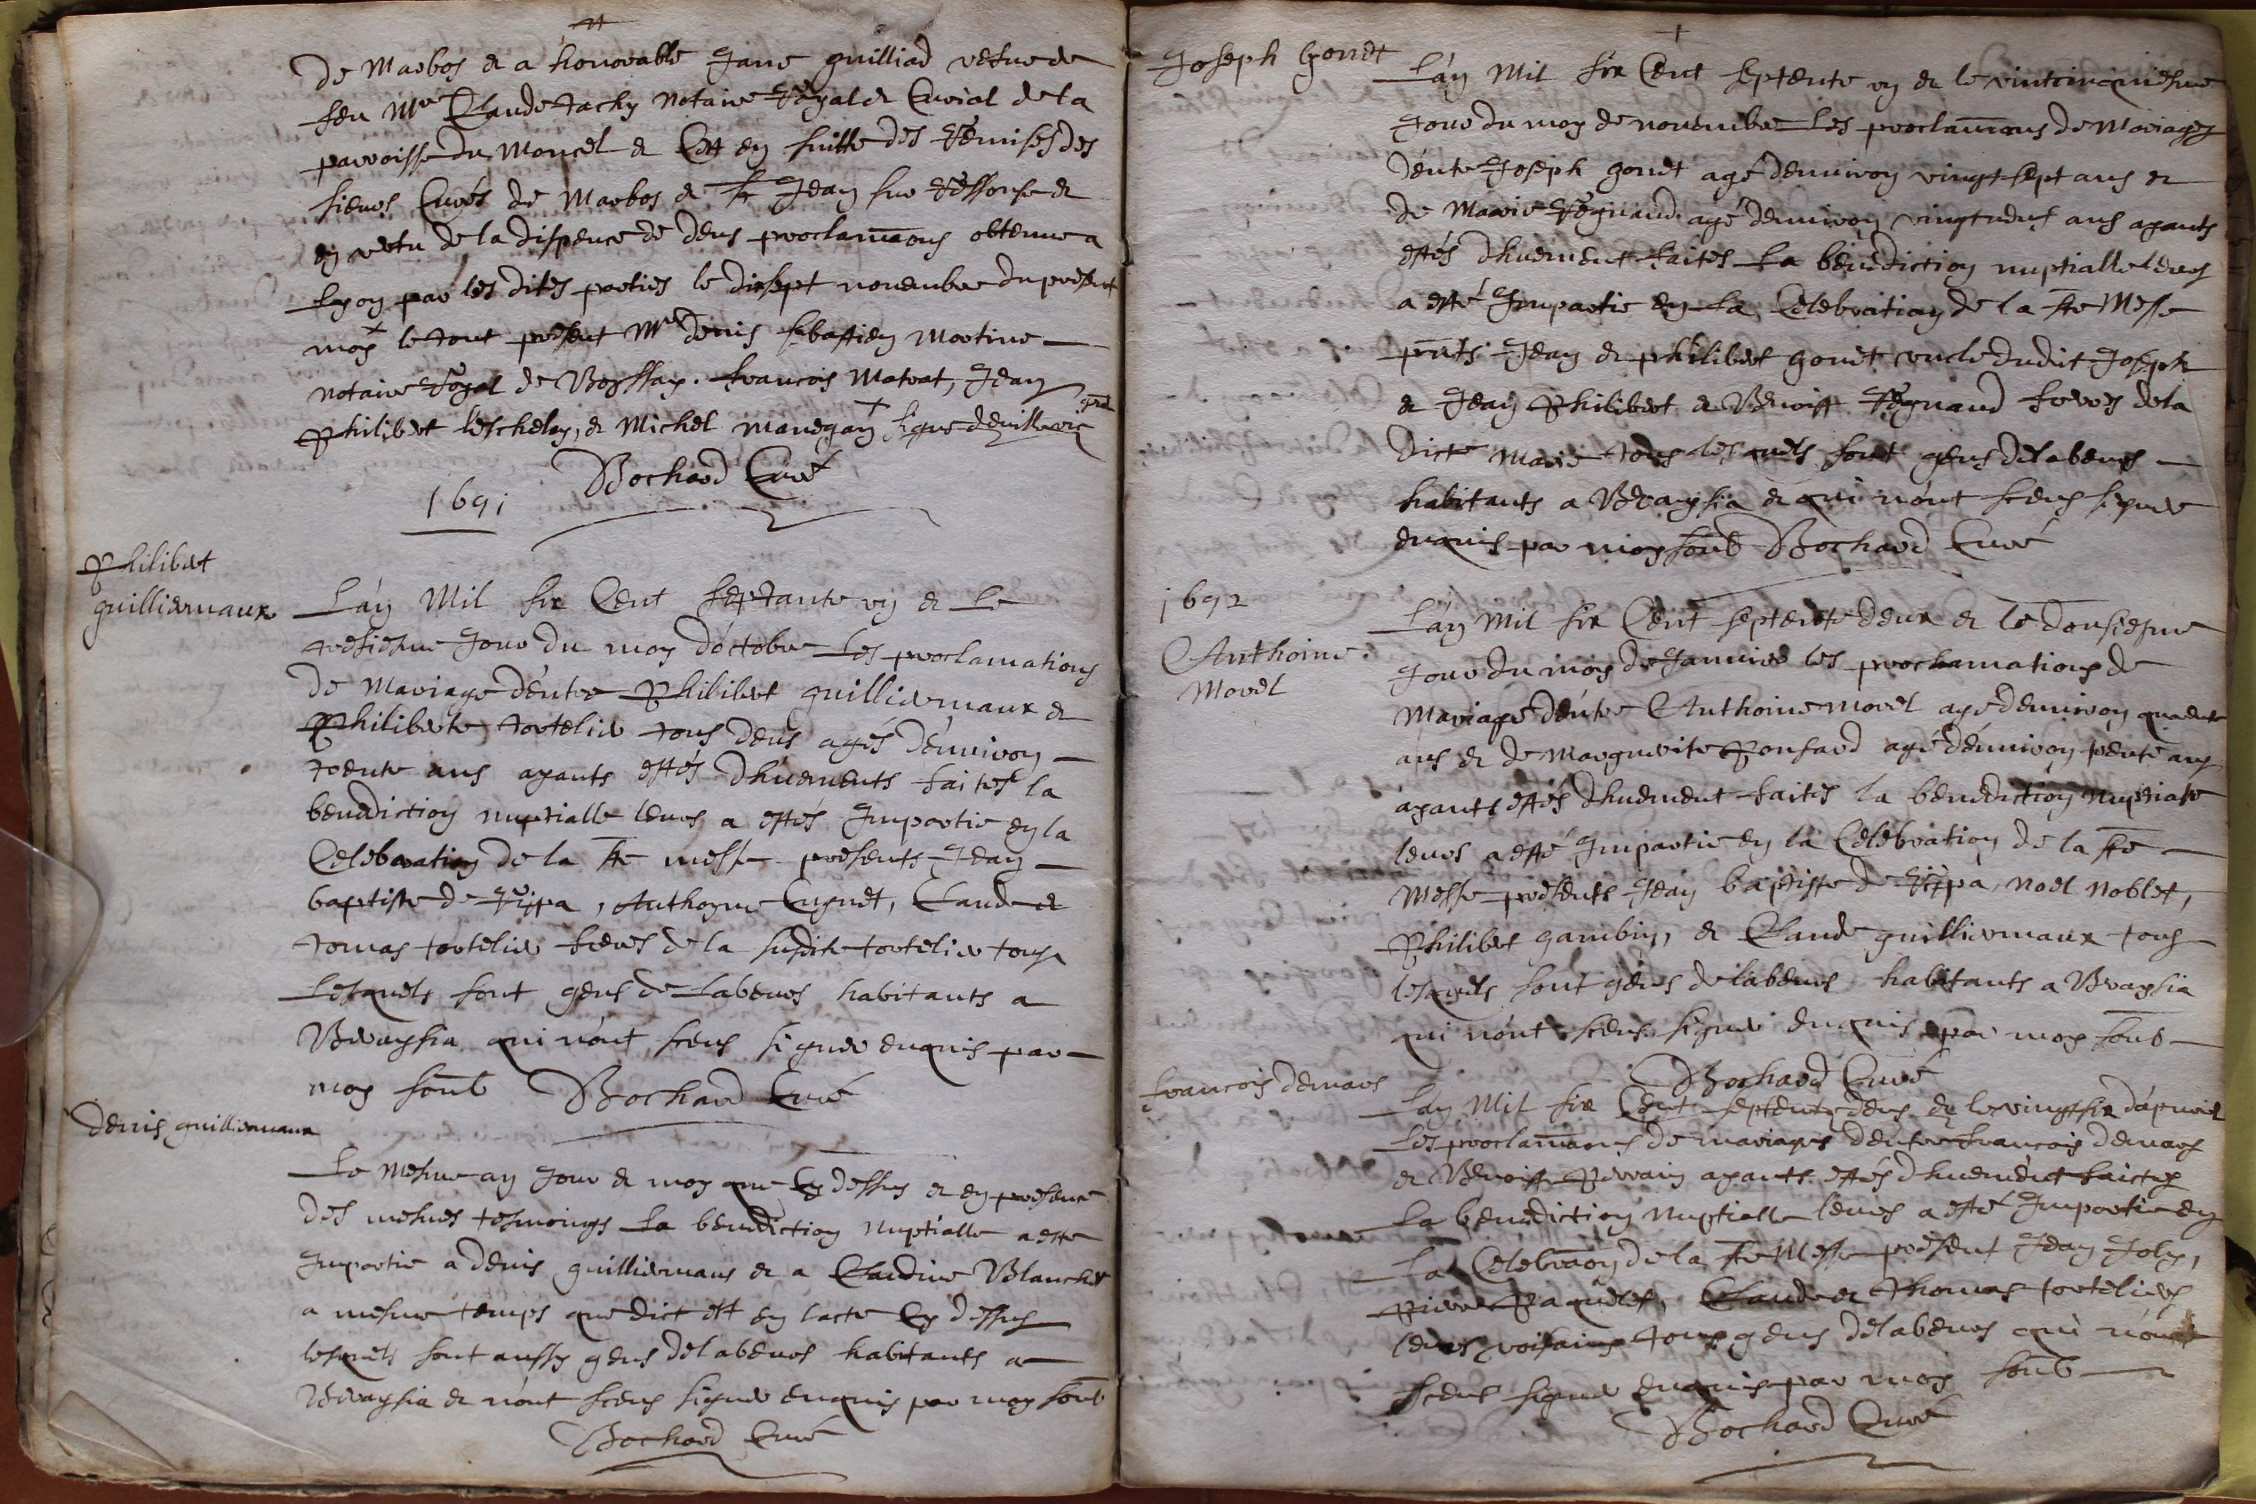 de Marbos & a honorable Jane guilliad vefve de
feu Mre Claude tachy notaire Royal & Curial de la
parroisse du Moncel & Cett en suitte des Remises des
sieurs Curés de Marbos & St Jean sur Ressouse &
en vertu de la dispence de deus proclamaons obtenue a
Lyon par les dites parties le dixsept novembre du present
moy le tout present Mre denis sebastien Martine
notaire Royal de Boissay. francois Matrat, Jean
Philibert leschelon, & Michel manegay
Bochard Curé
1691
Philibert
guilliermaux
L'an Mil six Cent septante un & Le
tresiesme Jour du moy d'octobre Les proclamations
de Mariage d'entre Philibert guilliermaux &
Philiberte tortelier tous deus agés d'environ
trente ans ayants estés dhuements faites la
benediction nuptialle leurs a estés Impartie en la
Celebration de la Ste messe presents Jean
baptiste de Rippa, Anthoyne Cugnet, Claude &
tomas tortelier freres de la susdite tortelier tous
Lesquels sont gens de Labeurs habitants a
Beraysia qui n'ont sceus signer enquis par
moy soub Bochard Curé
Denis guilliermaux
Le Mesme an Jour & moy que Cy dessus & en presence
des mesmes tesmoings La benediction nuptialle a esté
Impartie a denis guilliermaus & a Claudine Blanchet
a mesme temps que dict est en lacte Cy dessus
lesquels sont aussy gens de labeurs habitants a
Beraysia & n'ont sceus signer enquis par moy soub
Bochard Curé
Joseph Gonet
L'an Mil six Cent septente un & le vintcinquiesme
Jour du moy de novembre Les proclamaons de Mariages
d'entre Joseph gonet agé d'environ vingt sept ans &
de Marie Reignaud agé d'environ vingtdeus ans ayants
estés dhuement faites La benediction nuptialle leurs
a esté Impartie en La Celebration de la Ste Messe
pnts Jean & philibert gonet oncle dudit Joseph
& Jean Philibert & Benoist Reignaud freres de la
dicte Marie tous lesquels sont gens de labeurs
habitants a Beraysia & qui n'ont sceus signer
enquis par moy soub Bochard Curé
1692
Anthoine
Morel
L'an Mil six Cent septente deux & le Dousiesme
Jour du moys de Janvier les proclamations de
Mariage d'entre Anthoine morel agé d'environ quarente
ans & de Marguerite Ponsard agé d'environ trente ans
ayants estés dhuement faites la benediction Nuptiale
leurs a esté Impartie en la Celebration de la Ste
Messe presents Jean baptiste de Rippa, noel noblet,
Philibert gambin, & Claude guilliermaux tous
lesquels sont gens de labeurs habitants a Braysia
qui n'ont sceus signer enquis par moy soub
Bochard Curé
francois demars
L'an Mil six Cent septente deus & le vingtsix d'apvril
Les proclamaons de mariages d'entre francois demars
& Benoiste Perrain ayants estés dhuement faictes
La benediction Nuptialle leurs a esté Impartie en
La Celebraon de la Ste Messe present Jean Joly,
Pierre Paquelet, Claude & Thomas torteliers
leurs voisains tous gens de labeurs qui n'ont
sceus signer enquis par moy soub
Bochard Curé